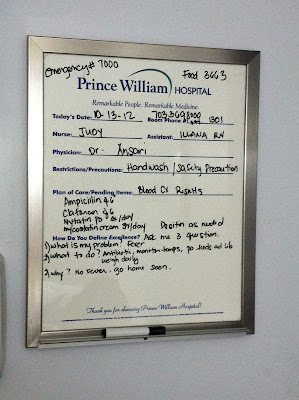 Emergency# 7000
Food 3663
Prince William HOSPITAL
Remarkable People. Remarkable Medicine.
Today's Date: 10-13-12 Room Phone #: 7033698000 1301
Nurse: Judy Assistant: ILIANA RN
Physician: Dr. Ansari
Restrictions/Precautions: Handwash / Safety Precaution
Plan of Care/Pending Items: Blood CX
Ampicillin q6
q6
Nystatin PO /day
cream /day Desitin as needed
How Do You Define Excellence? Ask me 3 question.
1) What is my problem? Fever
2) What to do? Antibiotic, monitor temps, po feeds
weigh daily
3) Why? No fever. go home soon.
Thank you for choosing Prince William Hospital!